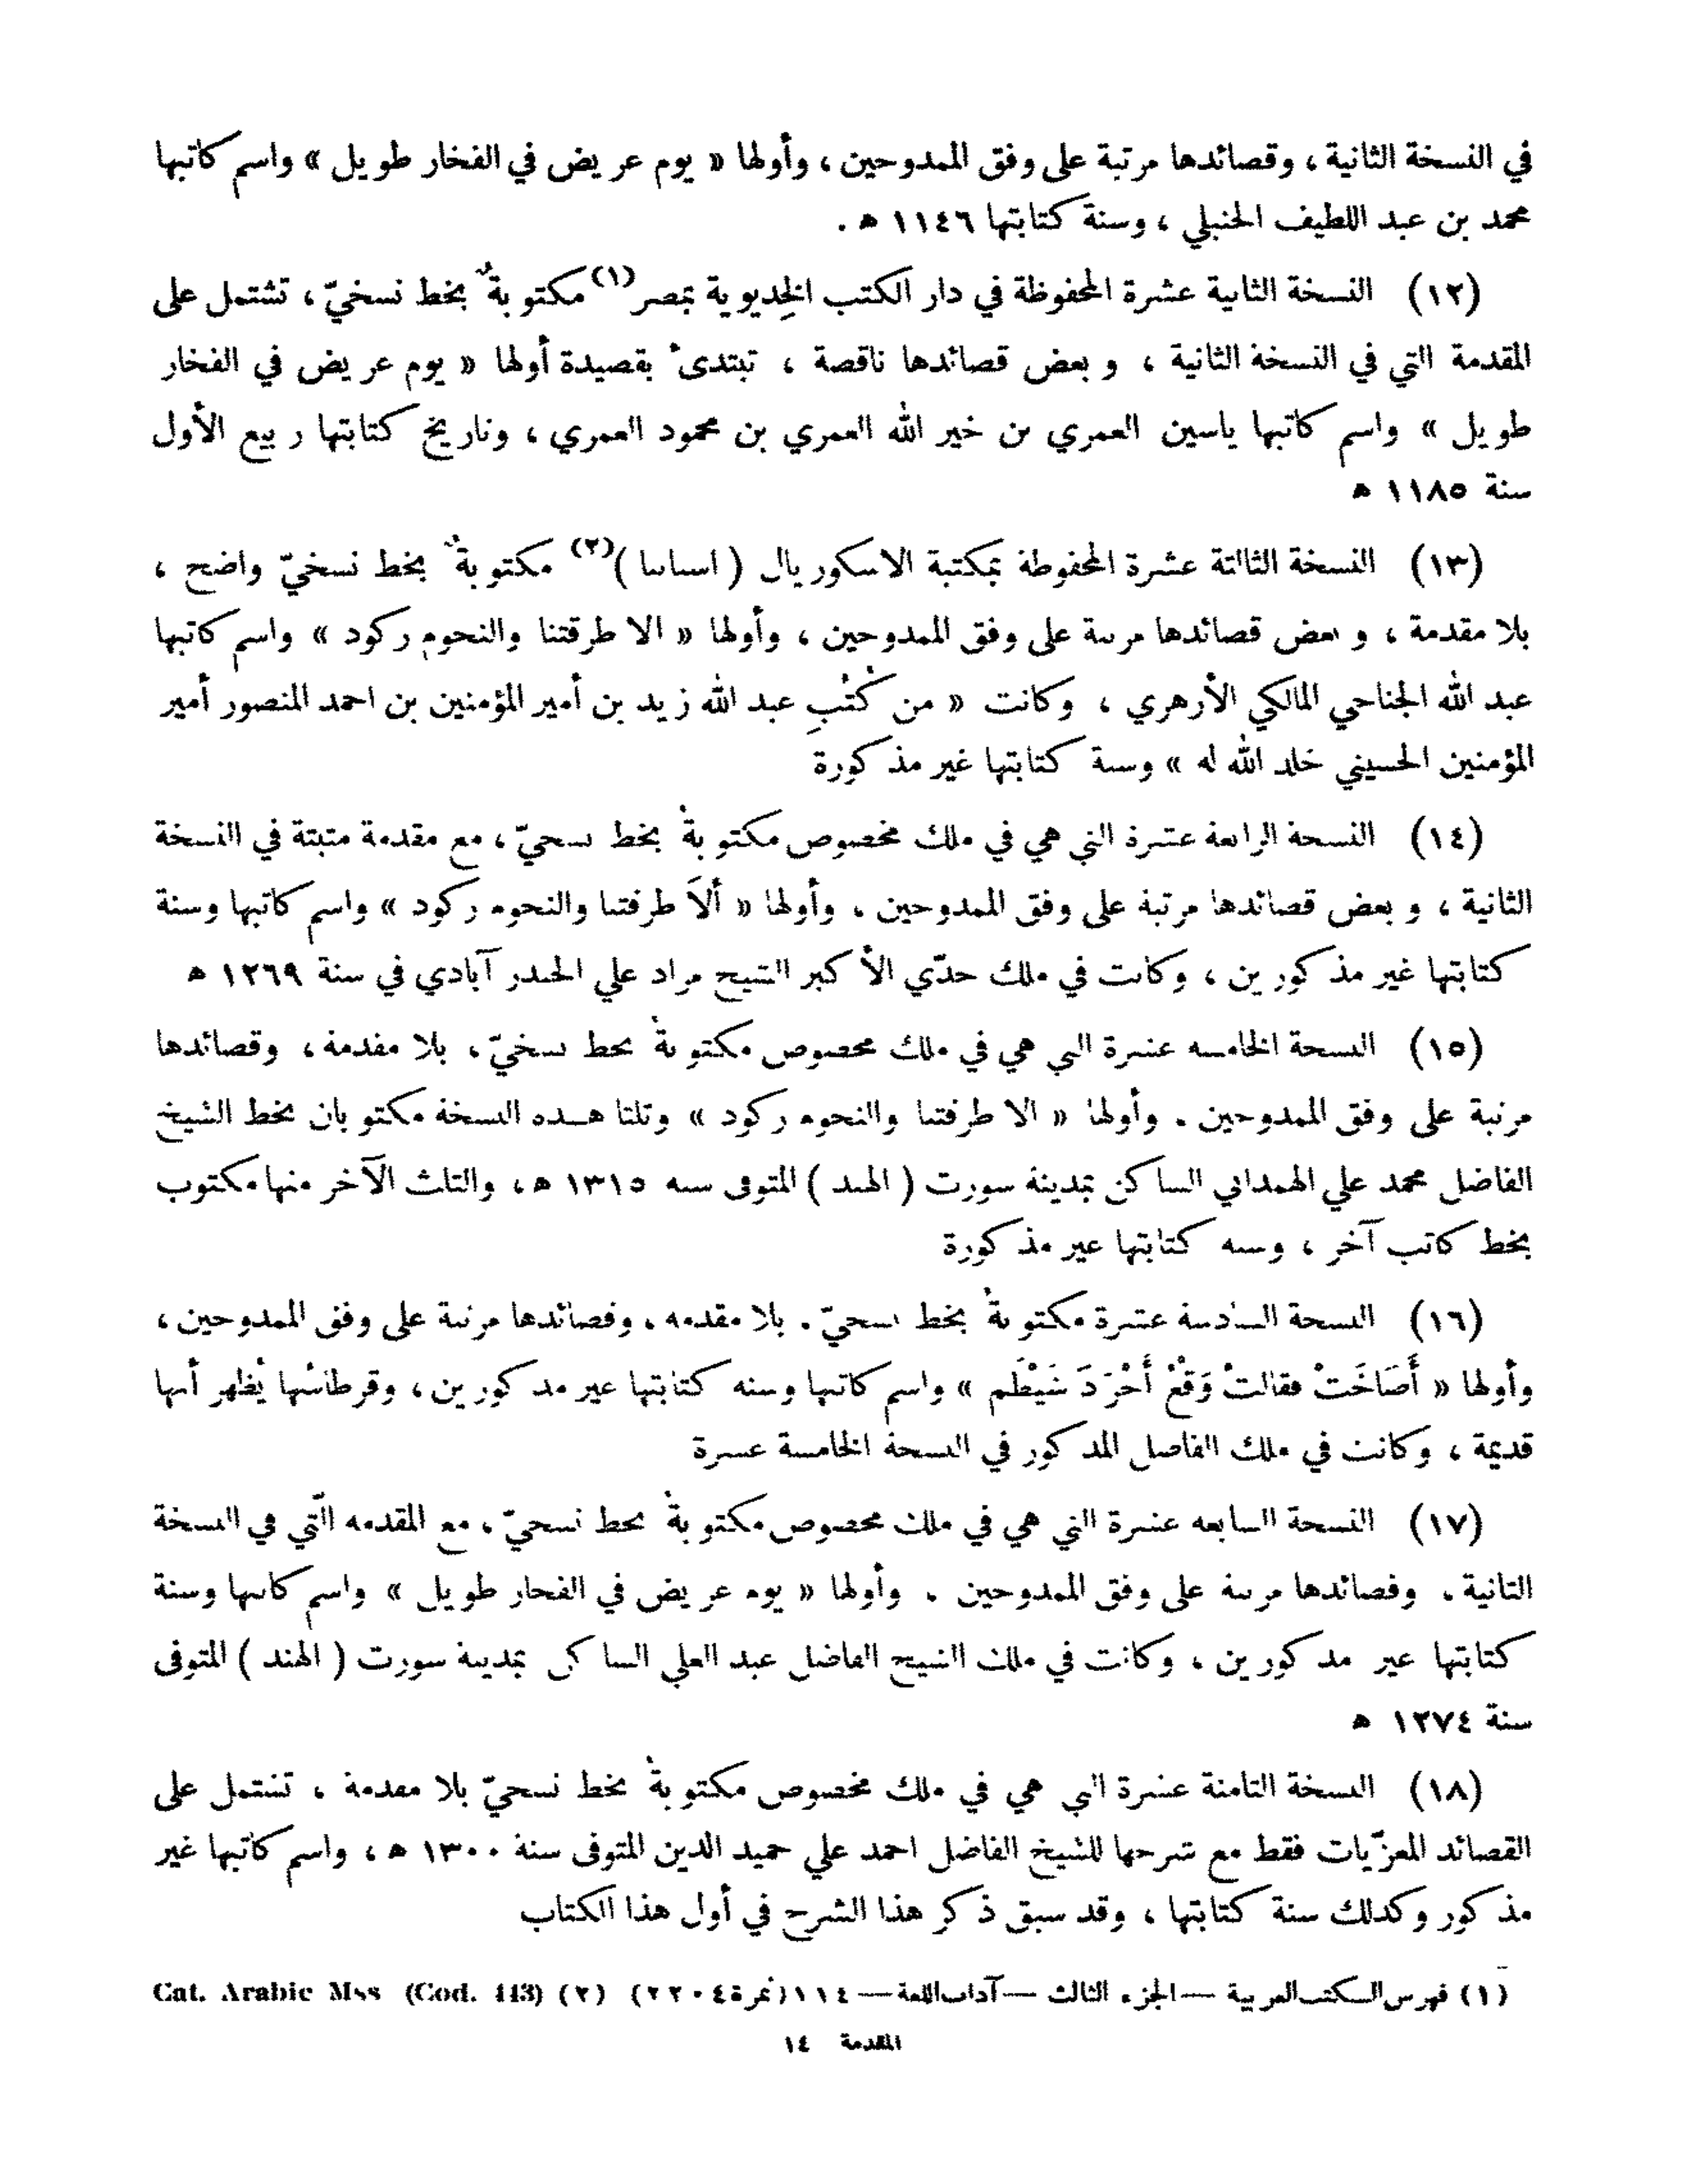 في النسخة الثانية ، وقصائدها مرتبة على وفق الممدوحين ، وأولها « يوم عريض في الفخار طويل » واسم كاتبها
محمد بن عبد اللطيف الحنبلي ، وسنة كتابتها ١١٤٦ ه .
(١٢) النسخة الثانية عشرة المحفوظة في دار الكتب الخِديوية بمصر(١) مكتوبةٌ بخط نسخيّ ، تشتمل على
المقدمة التي في النسخة الثانية ، وبعض قصائدها ناقصة ، تبتدئ بقصيدة أولها « يوم عريض في الفخار
طويل » واسم كاتبها ياسين العمري بن خير الله العمري بن محمود العمري ، وتاريخ كتابتها ربيع الأول
سنة ١١٨٥ ه
(١٣) النسخة الثالثة عشرة المحفوظة بمكتبة الاسكوريال ( اسبانيا )(٢) مكتوبةٌ بخط نسخيّ واضح ،
بلا مقدمة ، وبعض قصائدها مرتبة على وفق الممدوحين ، وأولها « الا طرقتنا والنجوم ركود » واسم كاتبها
عبد الله الجناحي المالكي الأزهري ، وكانت « من كُتُبِ عبد الله زيد بن أمير المؤمنين بن احمد المنصور أمير
المؤمنين الحسيني خلد الله له » وسنة كتابتها غير مذكورة
(١٤) النسخة الرابعة عشرة التي هي في ملك مخصوص مكتوبةٌ بخط نسخيّ ، مع مقدمة مثبتة في النسخة
الثانية ، وبعض قصائدها مرتبة على وفق الممدوحين ، وأولها « ألاَ طرقتنا والنجوم ركود » واسم كاتبها وسنة
كتابتها غير مذكورين ، وكانت في ملك جدّي الأكبر الشيخ مراد علي الحيدر آبادي في سنة ١٢٦٩ ه
(١٥) النسخة الخامسة عشرة التي هي في ملك مخصوص مكتوبةٌ بخط نسخيّ ، بلا مقدمة ، وقصائدها
مرتبة على وفق الممدوحين . وأولها « الا طرقتنا والنجوم ركود » وثلثا هذه النسخة مكتوبان بخط الشيخ
الفاضل محمد علي الهمداني الساكن بمدينة سورت ( الهند ) المتوفى سنة ١٣١٥ ه ، والثلث الآخر منها مكتوب
بخط كاتب آخر ، وسنة كتابتها غير مذكورة
(١٦) النسخة السادسة عشرة مكتوبةٌ بخط نسخيّ . بلا مقدمة ، وقصائدها مرتبة على وفق الممدوحين ،
وأولها « أَصَاخَتْ فقالتْ وَقْعُ أَجْرَدَ شَيْظَم » واسم كاتبها وسنة كتابتها غير مذكورين ، وقرطاسُها يُظهر أنها
قديمة ، وكانت في ملك الفاضل المذكور في النسخة الخامسة عشرة
(١٧) النسخة السابعة عشرة التي هي في ملك مخصوص مكتوبةٌ بخط نسخيّ ، مع المقدمة الّتي في النسخة
الثانية . وقصائدها مرتبة على وفق الممدوحين . وأولها « يوم عريض في الفخار طويل » واسم كاتبها وسنة
كتابتها غير مذكورين ، وكانت في ملك الشيخ الفاضل عبد العلي الساكن بمدينة سورت ( الهند ) المتوفى
سنة ١٢٧٤ ه
(١٨) النسخة الثامنة عشرة التي هي في ملك مخصوص مكتوبةٌ بخط نسخيّ بلا مقدمة ، تشتمل على
القصائد المعزّيات فقط مع شرحها للشيخ الفاضل احمد علي حميد الدين المتوفى سنة ١٣٠٠ ه ، واسم كاتبها غير
مذكور وكذلك سنة كتابتها ، وقد سبق ذكر هذا الشرح في أول هذا الكتاب
(١) فهرس الكتب العربية — الجزء الثالث — آداب اللغة — ١١٤ (نمرة ٢٢٠٤) (٢) Cat. Arabic Mss (Cod. 443)
المقدمة ١٤